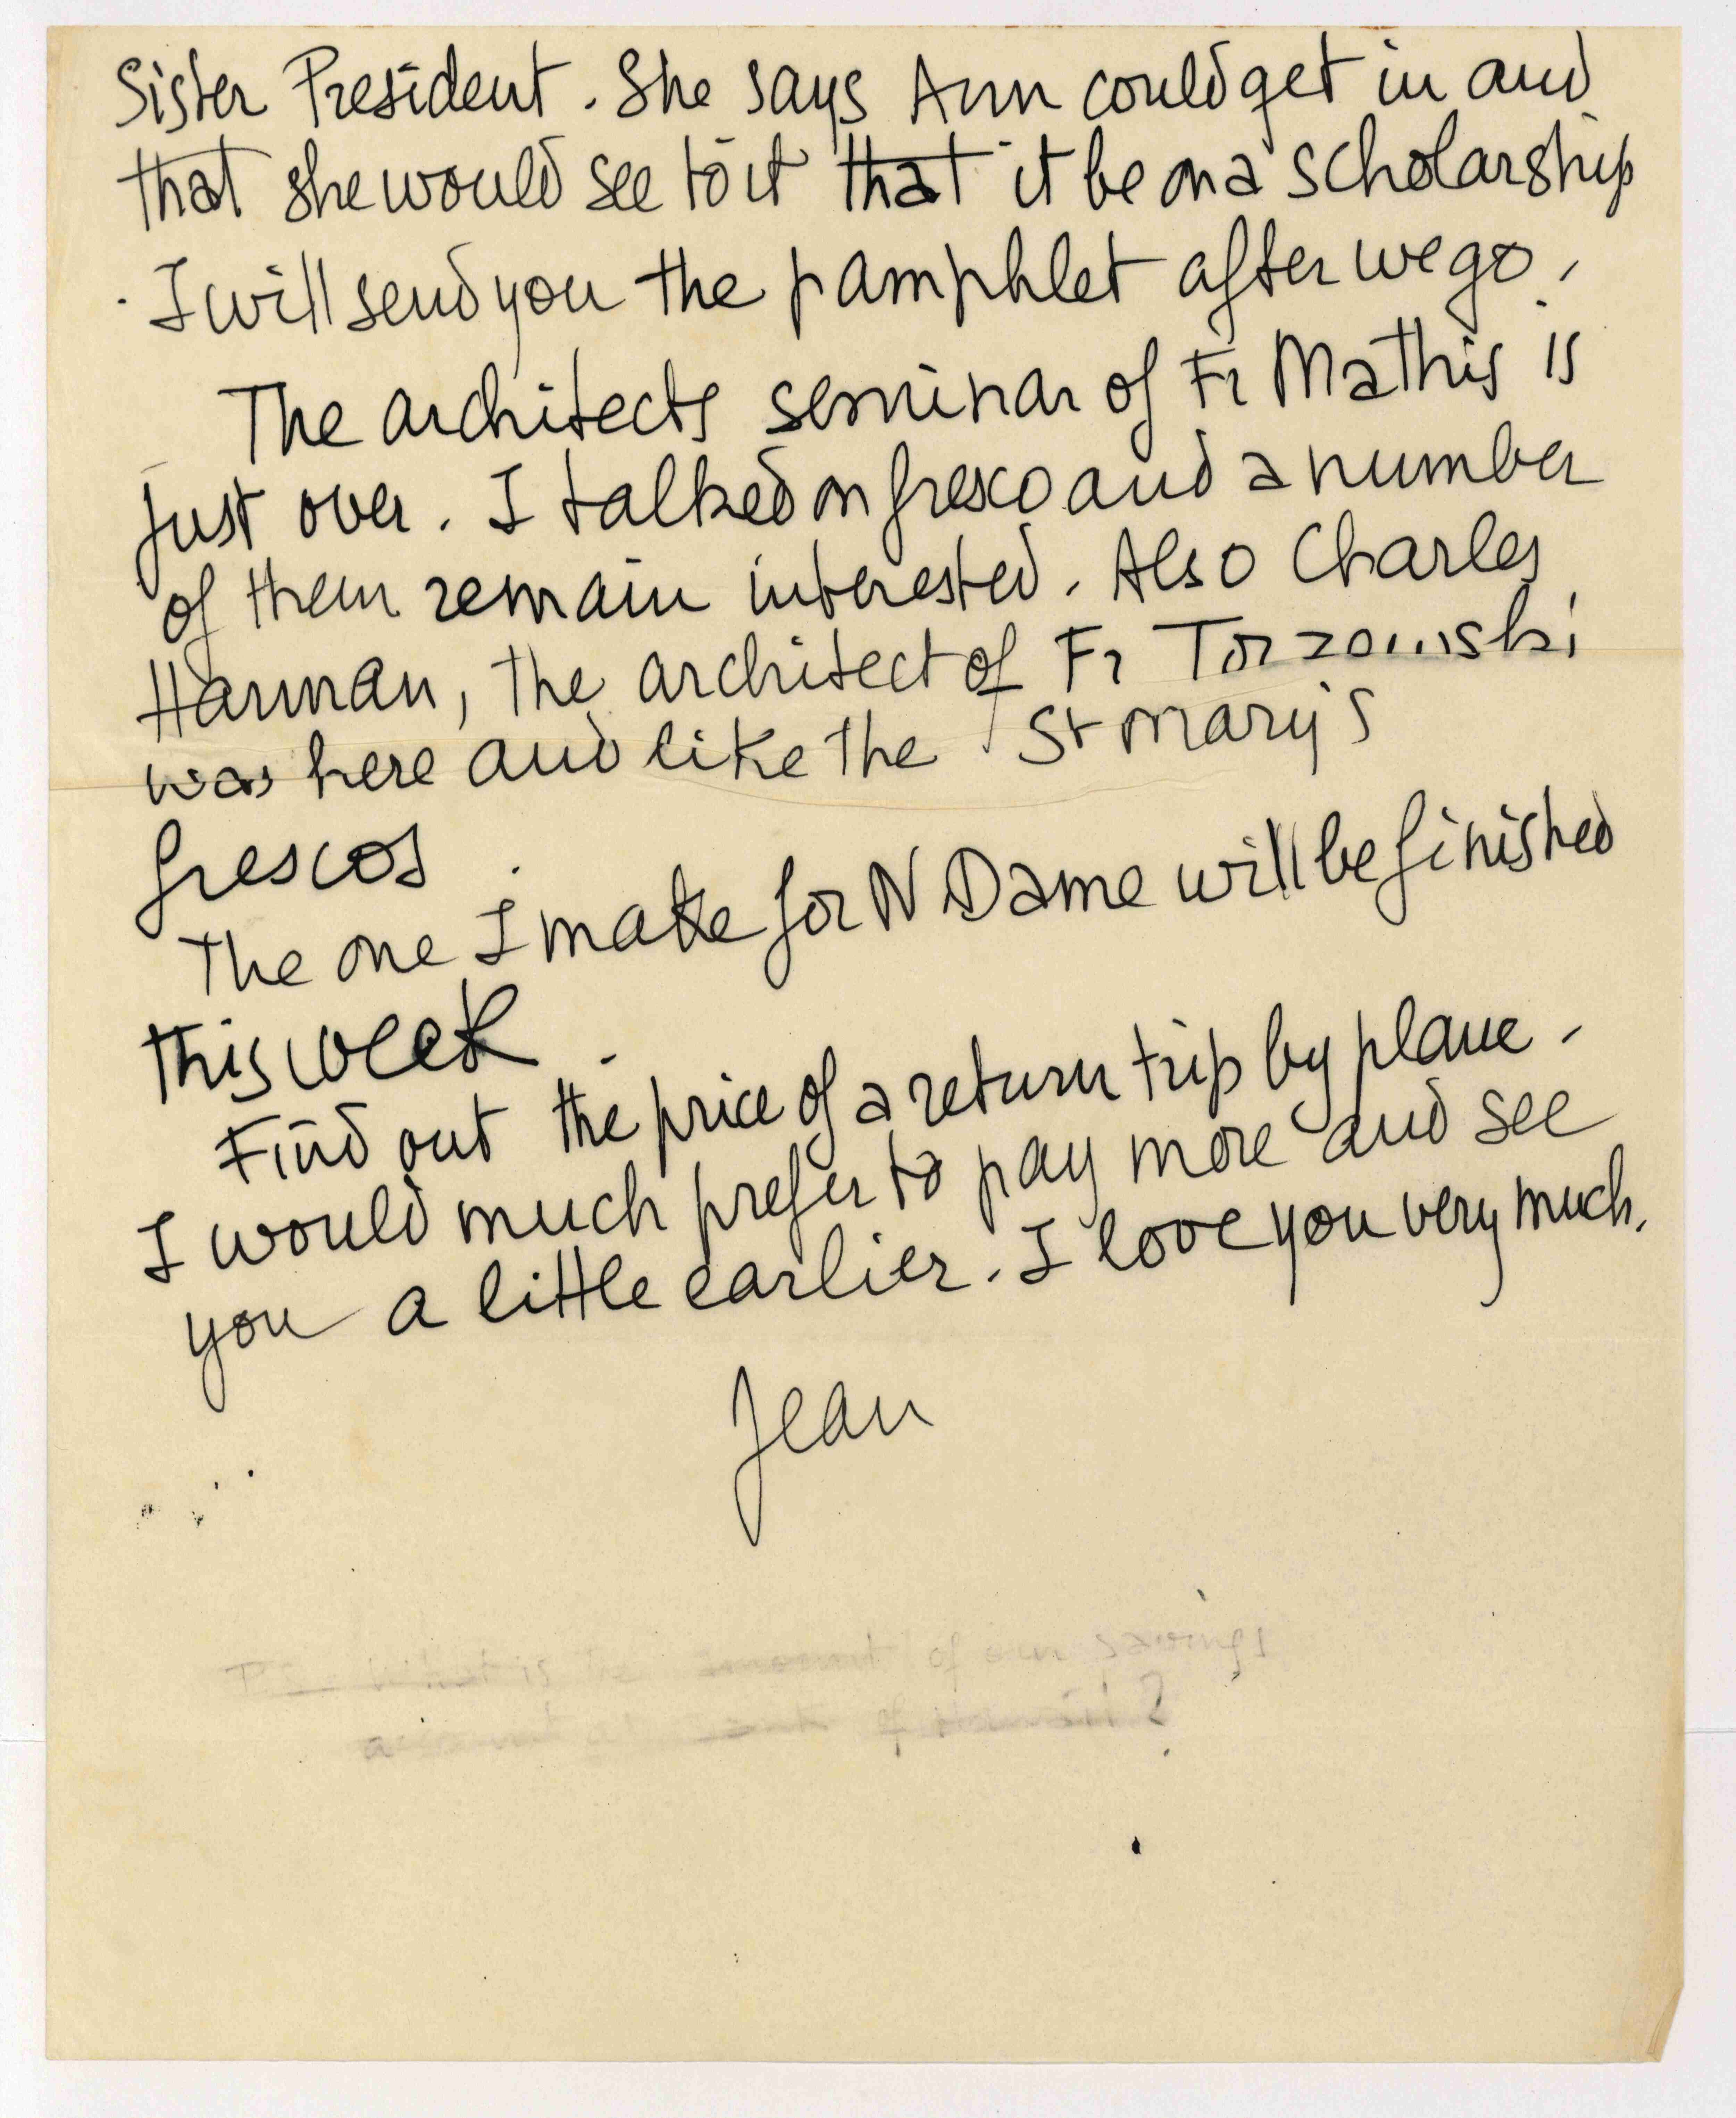 Sister President. She says Ann could get in and
that she would see to it that it be on a scholarship
. I will send you the pamphlet after we go.
The architects seminar of Fr Mathis is
just over. I talked on fresco and a number
of them remain interested. Also Charles
Harman, the architect of Fr
was here and like the St Mary's
frescos.
The one I make for N Dame will be finished
this week.
Find out the price of a return trip by plane.
I would much prefer to pay more and see
you a little earlier. I love you very much.
Jean
of our savings